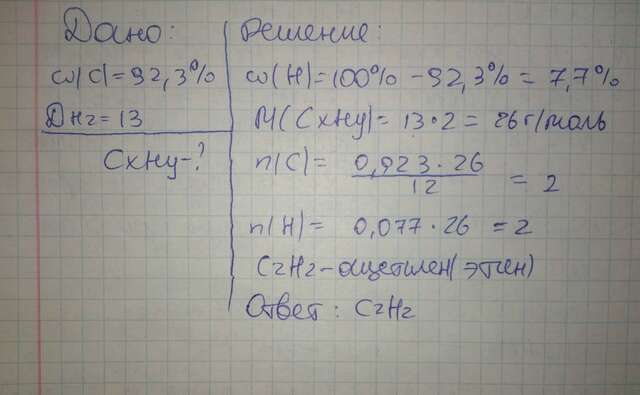 Дано:
ω(C)=92,3%
DH2=13
CxHy-?
Решение:
ω(H)=100%-92,3%=7,7%
M(CxHy)=13·2=26г/моль
n(C)=0,923·26/12=2
n(H)=0,077·26=2
C2H2-ацетилен(этин)
Ответ: C2H2